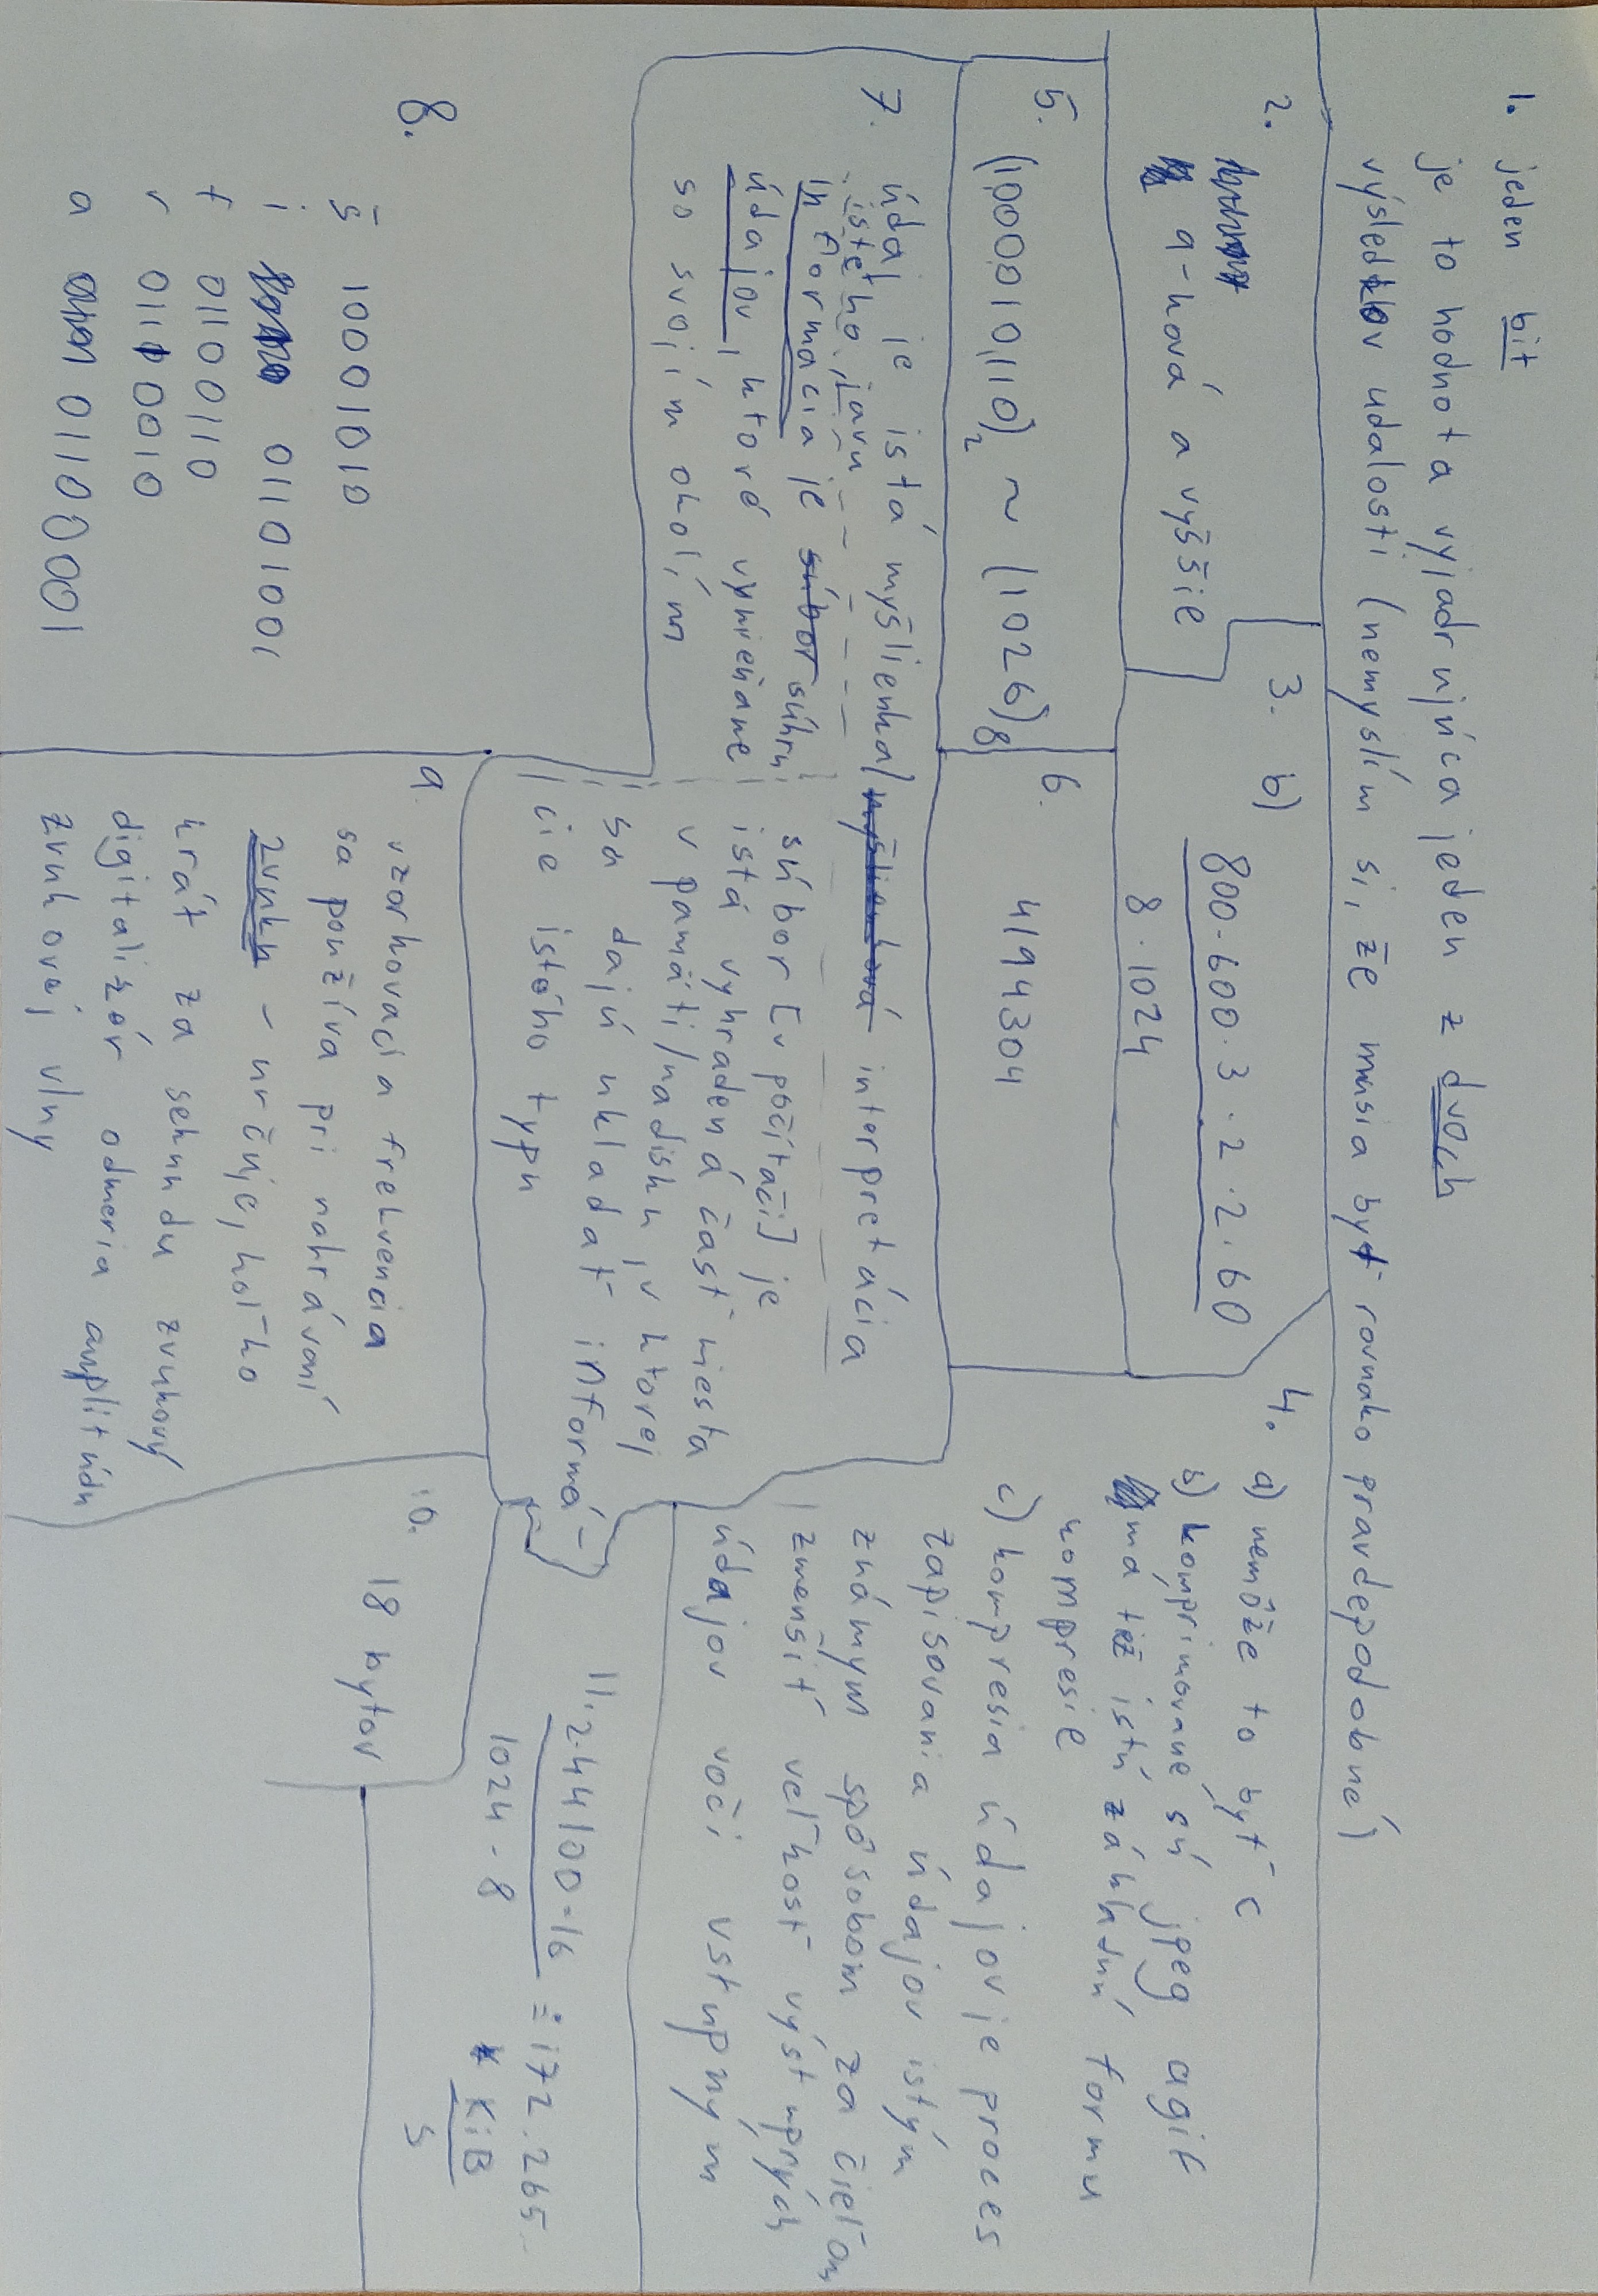 1. jeden bit
je to hodnota vyjadrujúca jeden z dvoch
výsledkov udalosti (nemyslím si, že musia byť rovnako pravdepodobné)
2.
a-ková a vyššie
3. b) 800·600·3·2·2·60
8·1024
4. a) nemôže to byť c
b) komprimované sú jpeg a gif
má tiež istú základnú formu
kompresie
c) kompresia údajov je proces
zapisovania údajov istým
známym spôsobom za cieľom
zmenšiť veľkosť výstupných
údajov voči vstupným
5. (1000010110)₂ ~ (1026)₈
6. 4194304
7. údaj je istá myšlienka/myšlienková interpretácia
istého javu
informácia je súbor súhrn
údajov, ktoré vymieňame
so svojím okolím
súbor [v počítači] je
istá vyhradená časť miesta
v pamäti/na disku, v ktorej
sa dajú ukladať informá-
cie istého typu
8.
š 10011010
i 01101001
f 01100110
r 01110010
a 01100001
9. vzorkovacia frekvencia
sa používa pri nahrávaní
zvuku - určuje, koľko
krát za sekundu zvukový
digitalizér odmeria amplitúdu
zvukovej vlny
10. 18 bytov
11. 2·44100·16 ≐ 172.265
1024·8
KiB
s